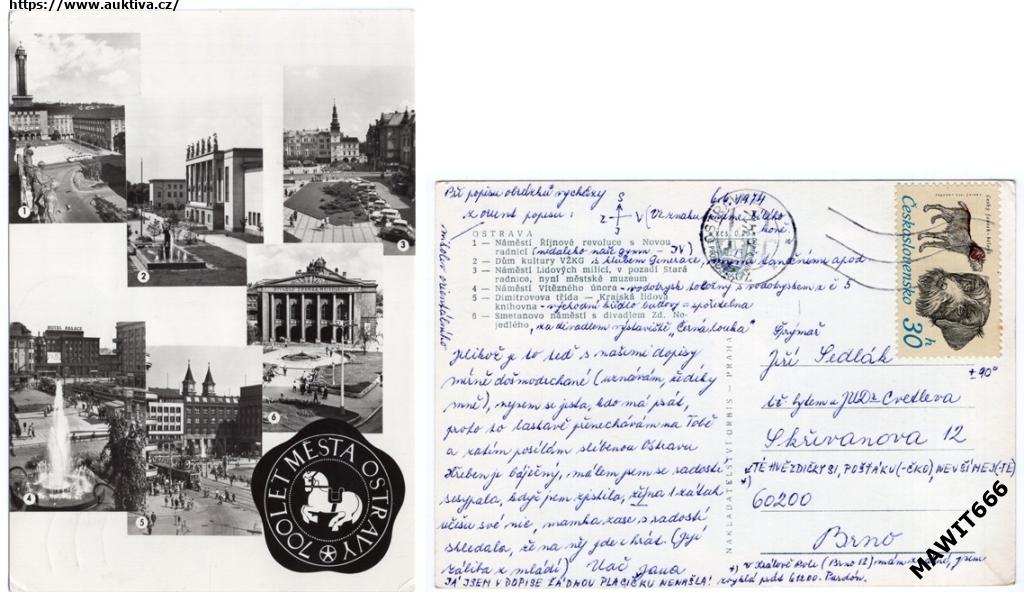 https://www.auktiva.cz/
1
2
3
HOTEL PALACE
4
5
6
700 LET MĚSTA OSTRAVY
Při popisu obrázků vycházky
z orient popisu:
S
Z
V
J
OSTRAVA
1 — Náměstí Říjnové revoluce s Novou
radnicí (nedaleko naše gymn - IV)
2 — Dům kultury VŽKG s klubem Generace,
3 — Náměstí Lidových milicí, v pozadí Stará
radnice, nyní městské muzeum
4 — Náměstí Vítězného února - vodotrysk totožný s vodotryskem z č 5
5 — Dimitrovova třída — Krajská lidová
knihovna - východní křídlo budovy = spořitelna
6 — Smetanovo náměstí s divadlem Zd. Ne-
jedlého, za divadlem výstaviště "Černá louka"
Jelikož je to teď s našimi dopisy
mírně došmodrchané (uznávám, že díky
mně), nejsem si jista, kdo má psát,
proto to laskavě přenechávám na Tobě
a zatím posílám slíbenou Ostravu
Hřeben je báječný, málem jsem se radostí
sesypala, když jsem zjistila, že jím 1 zátah
učísu své nic, mamka zase s radostí
shledala, že na něj jde i hrát. (Její
záliba z mládí) Uač Jana
JÁ JSEM V DOPISE ŽÁDNOU PLACIČKU NENAŠLA!
NAKLADATELSTVÍ ORBIS — PRAHA
Československo
30 h
± 90°
Šprýmař
Jiří Sedlák
t.č. bytem u JUDr Cvetleva
Skřivanova 12
TÉ HVĚZDIČKY SI, POŠŤÁKU (-ČKO), NEVŠÍMEJ (-TE)
60200
Brno
+) V Králově Poli (Brno 12) jsem
zvyklá psát 61200. Pardón.
MAWIT666